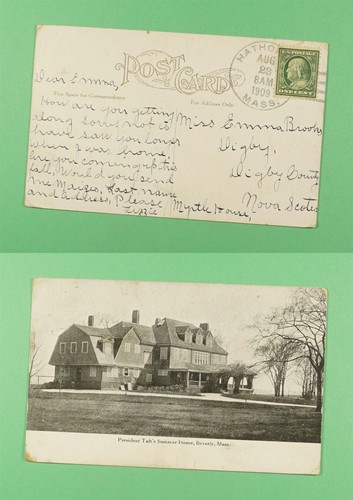 POST CARD
This Space for Correspondence
For Address Only
HATHO
AUG
23
8AM
1909
MASS.
U.S. POSTAGE
ONE CENT
Dear Emma,
How are you getting
along sorry not to
have saw you longer
when I was home,
are you coming up this
fall, Would you send
me last name
and address, Please
Lizzie
Miss Emma Brooks,
Digby,
Digby County
Myrtle House,
Nova Scotia
President Taft's Summer House, Beverly, Mass.